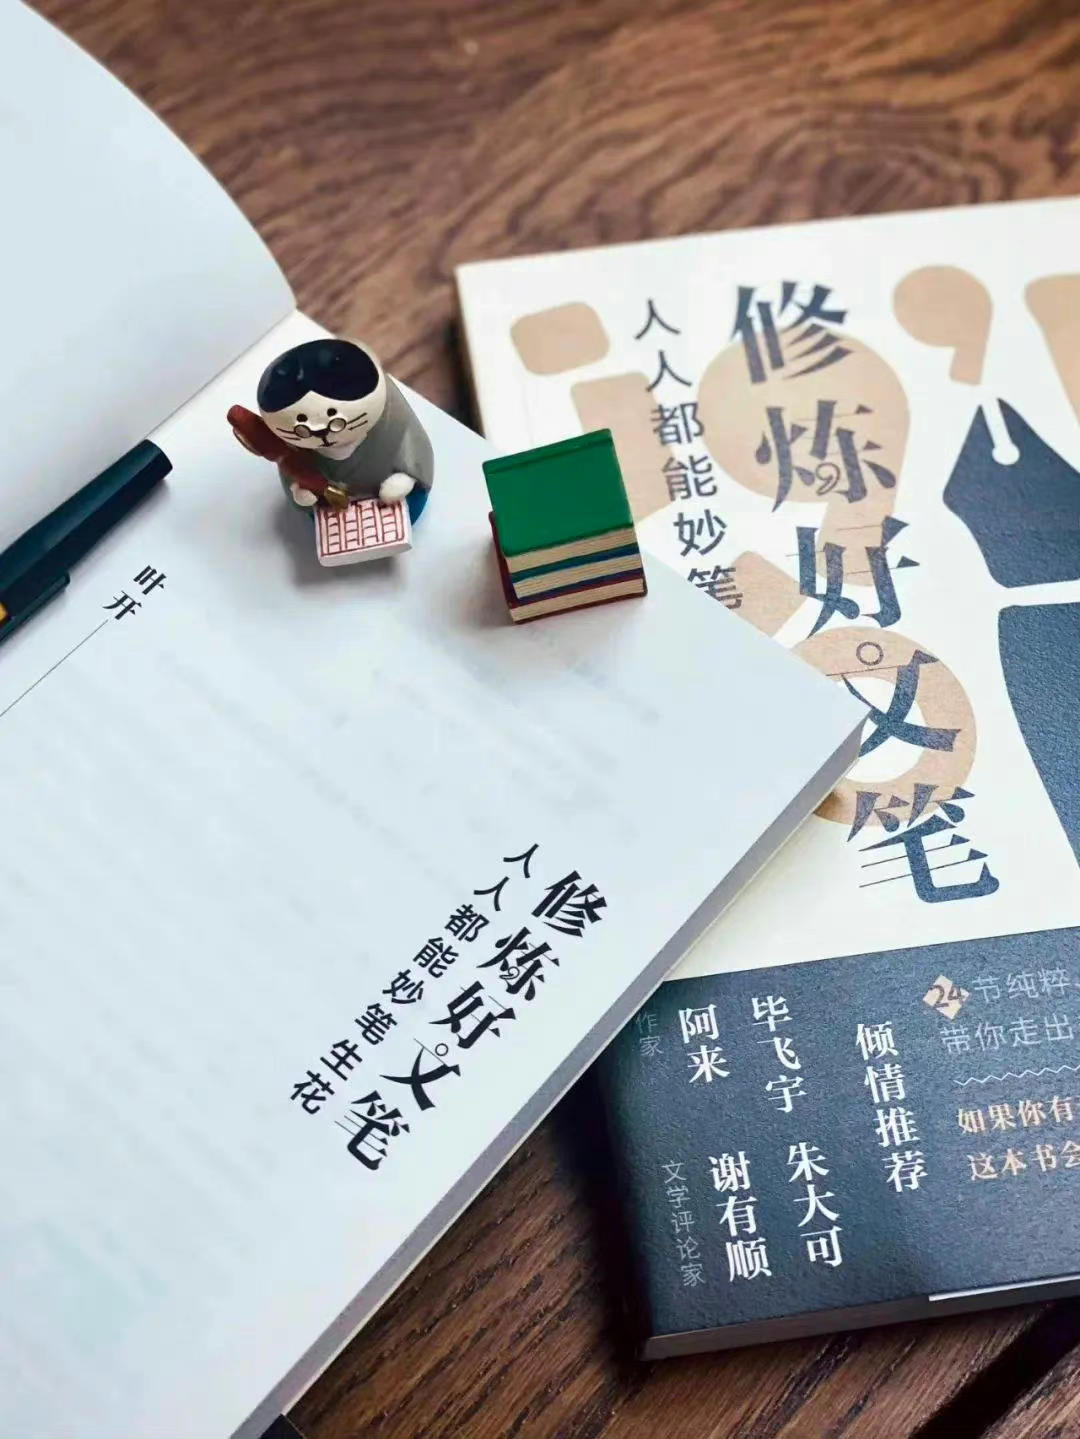 叶开
修炼好文笔
人人都能妙笔生花
修炼好文笔
人人都能妙笔
24节纯粹
带你走出
如果你有
这本书会
倾情推荐
毕飞宇
朱大可
作家
阿来
文学评论家
谢有顺